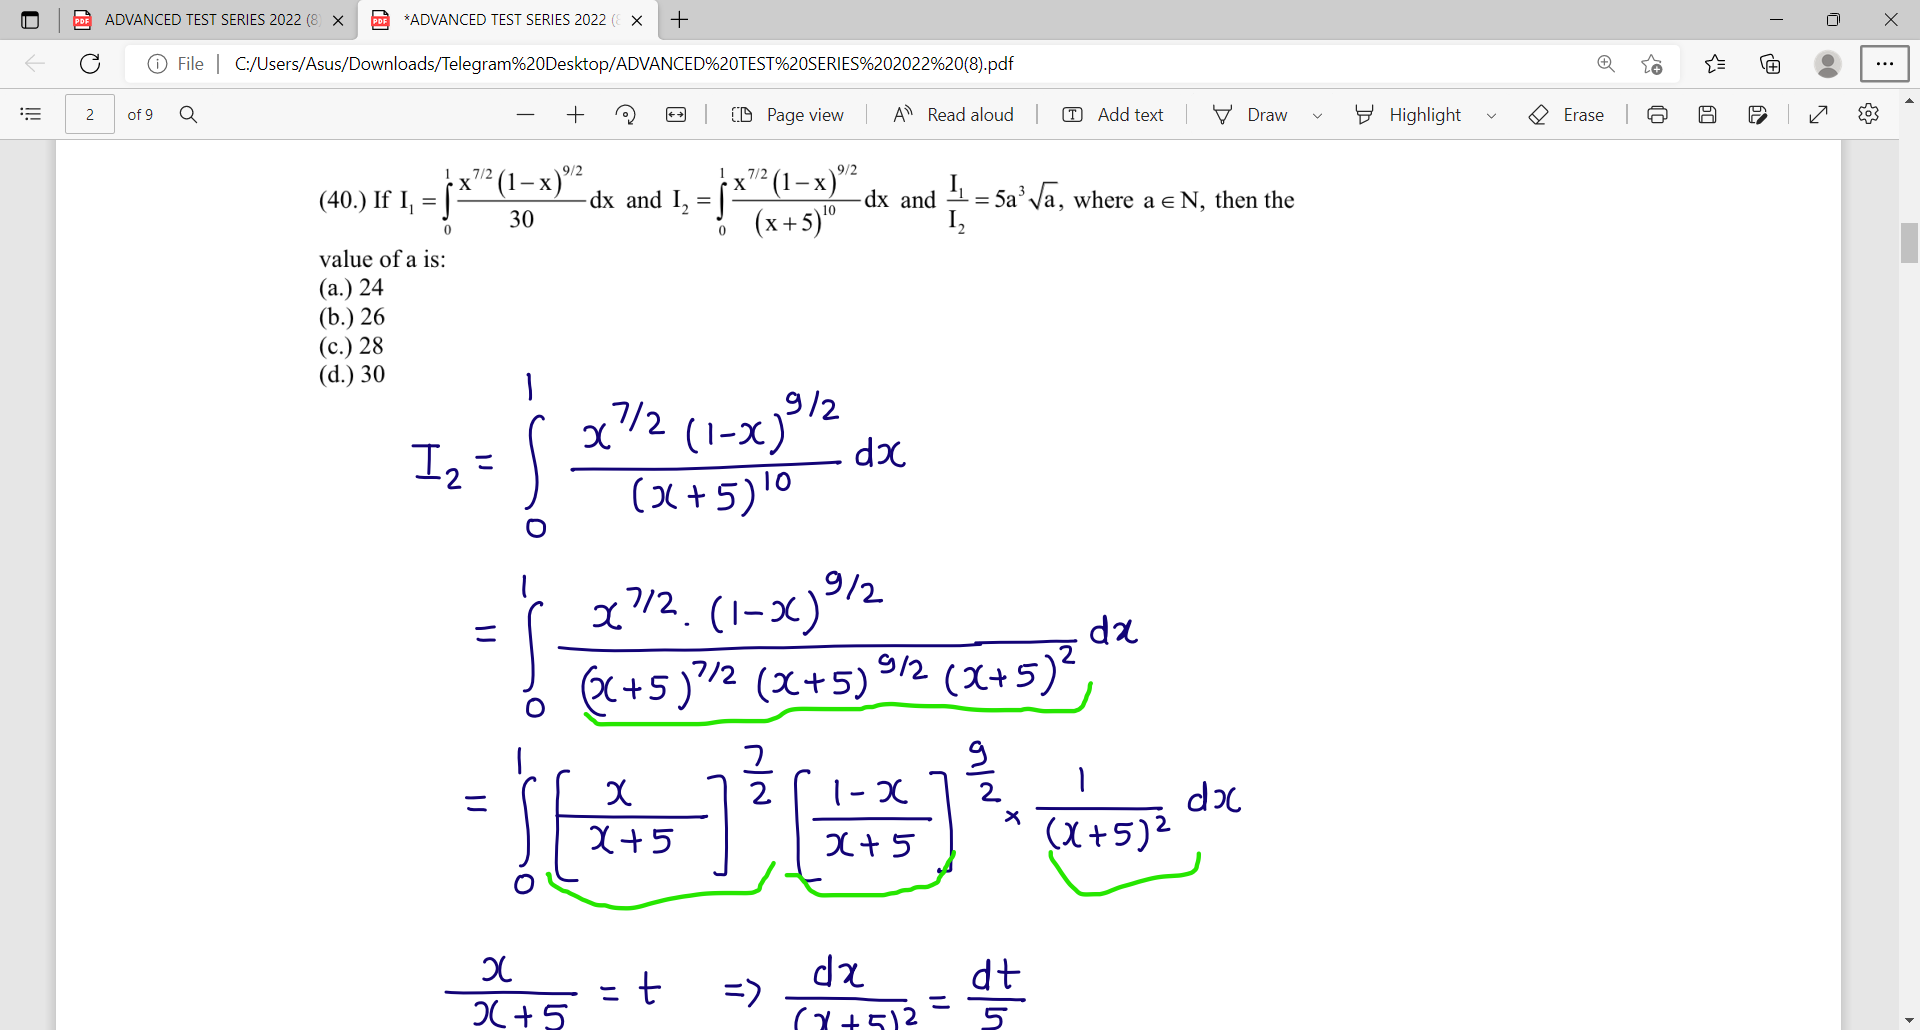 ADVANCED TEST SERIES 2022 (8
*ADVANCED TEST SERIES 2022 (8
File | C:/Users/Asus/Downloads/Telegram%20Desktop/ADVANCED%20TEST%20SERIES%202022%20(8).pdf
2 of 9 Page view Read aloud Add text Draw Highlight Erase
(40.) If I₁ = ∫₀¹ x^{7/2} (1−x)^{9/2} / 30 dx and I₂ = ∫₀¹ x^{7/2} (1−x)^{9/2} / (x+5)^{10} dx and I₁/I₂ = 5a³√a, where a ∈ N, then the
value of a is:
(a.) 24
(b.) 26
(c.) 28
(d.) 30
I₂ = ∫₀¹ x^{7/2} (1-x)^{9/2} / (x+5)^{10} dx
= ∫₀¹ x^{7/2} . (1-x)^{9/2} / (x+5)^{7/2} (x+5)^{9/2} (x+5)² dx
= ∫₀¹ [x / x+5]^{7/2} [1-x / x+5]^{9/2} × 1 / (x+5)² dx
x / x+5 = t => dx / (x+5)² = dt / 5